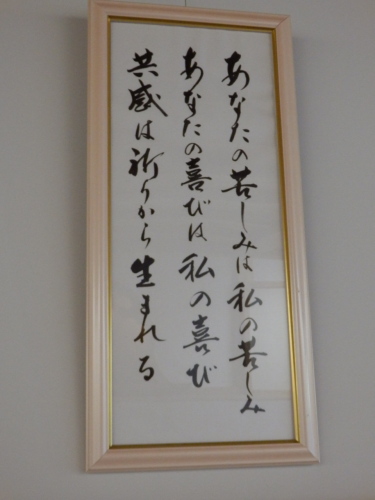 あなたの苦しみは私の苦しみ
あなたの喜びは私の喜び
共感は祈りから生まれる